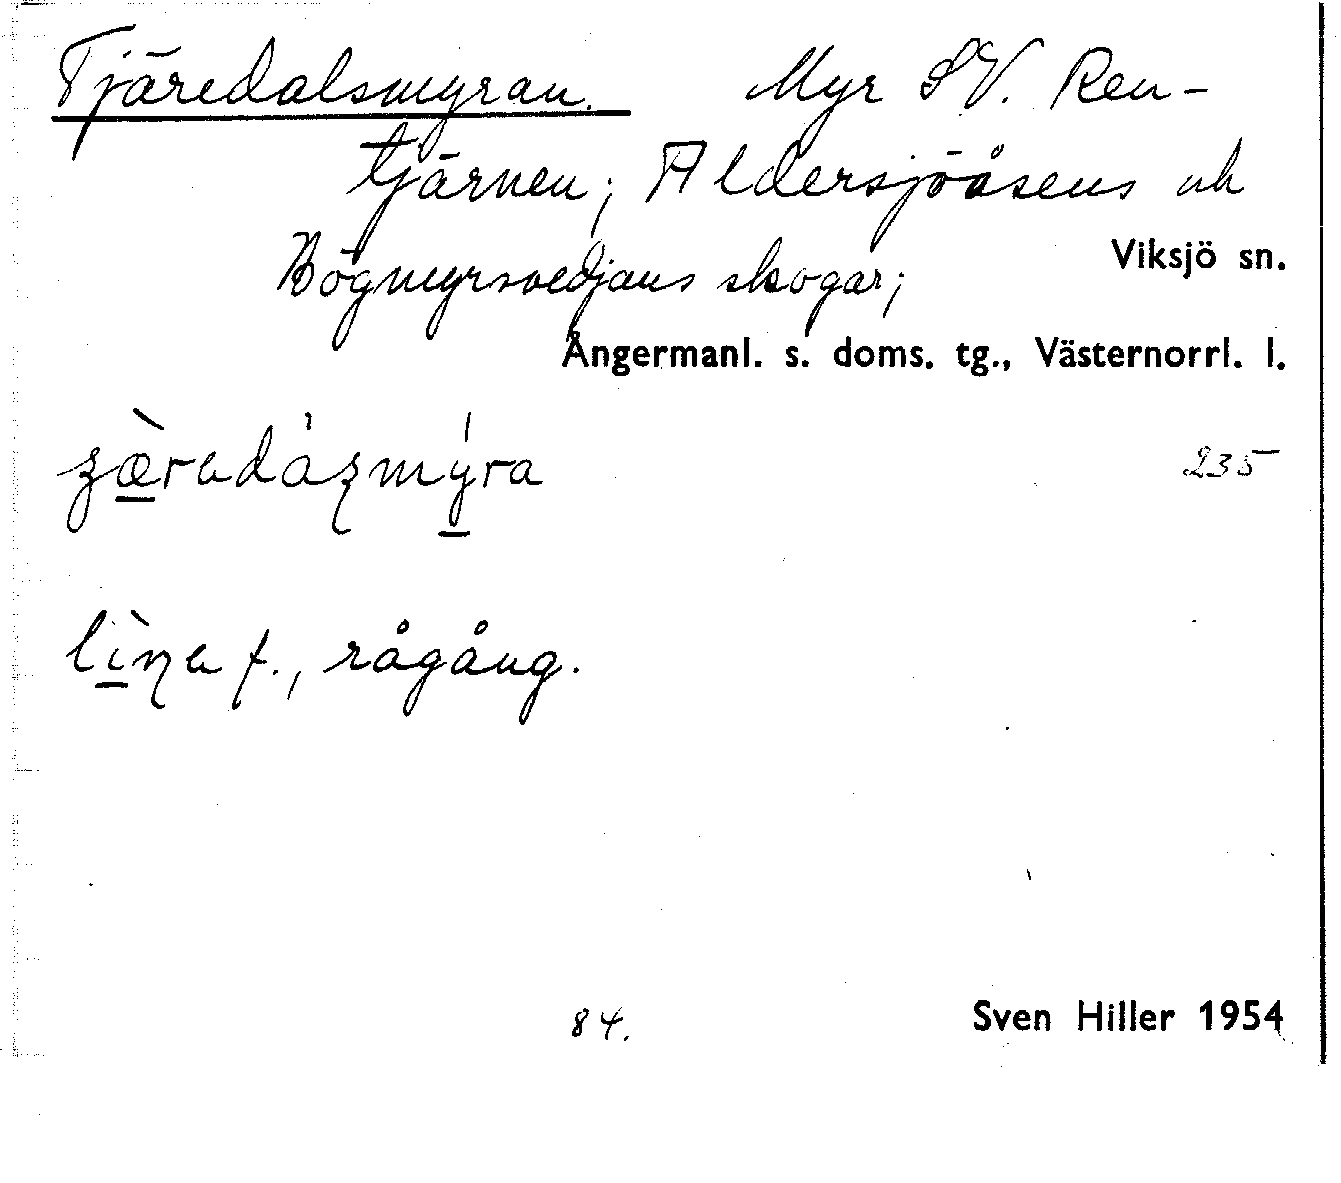 Tjäredalsmyran. Myr SV. Ren-
tjärnen; Aldersjöåsens ok
Bögmyrsvedjans skogar;
Viksjö sn.
Ångermanl. s. doms. tg., Västernorrl. l.
235
f., rågång.
84.
Sven Hiller 1954